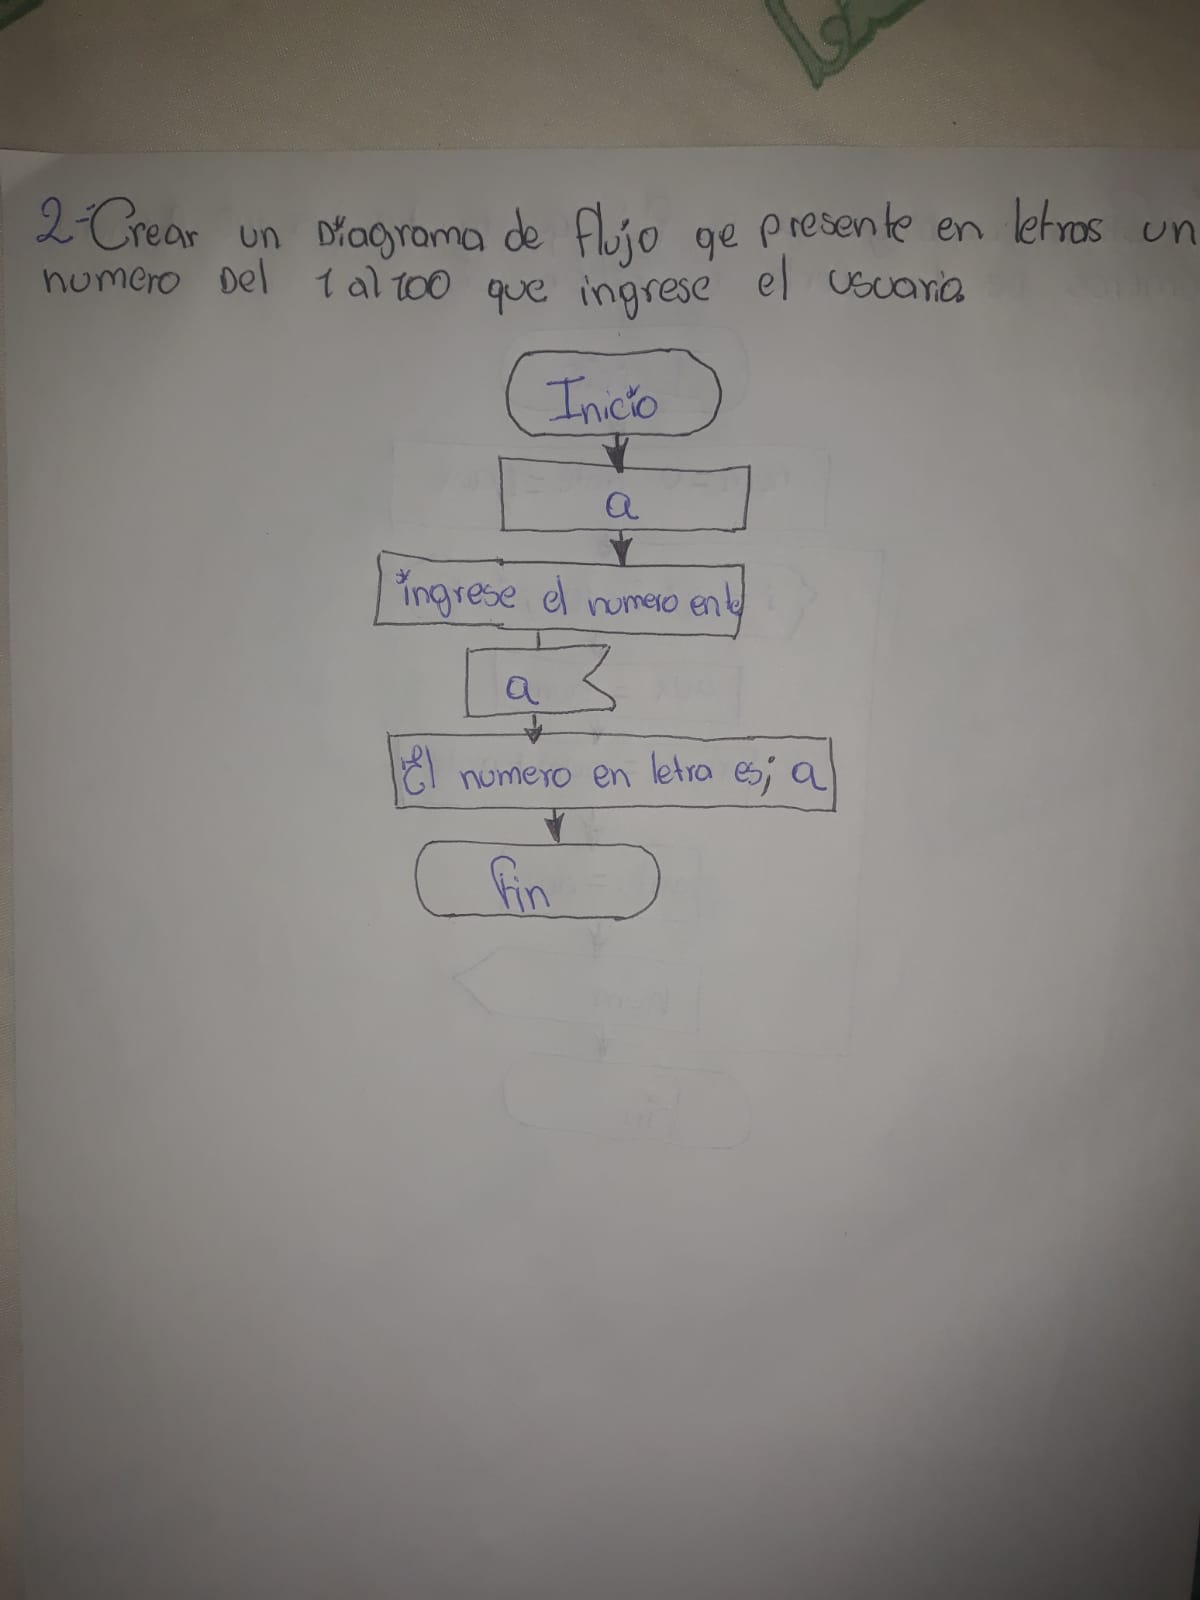 2-Crear un Diagrama de flujo qe presente en letras un
numero Del 1 al 100 que ingrese el usuario
Inicio
a
ingrese el numero en
a
El numero en letra es; a
fin